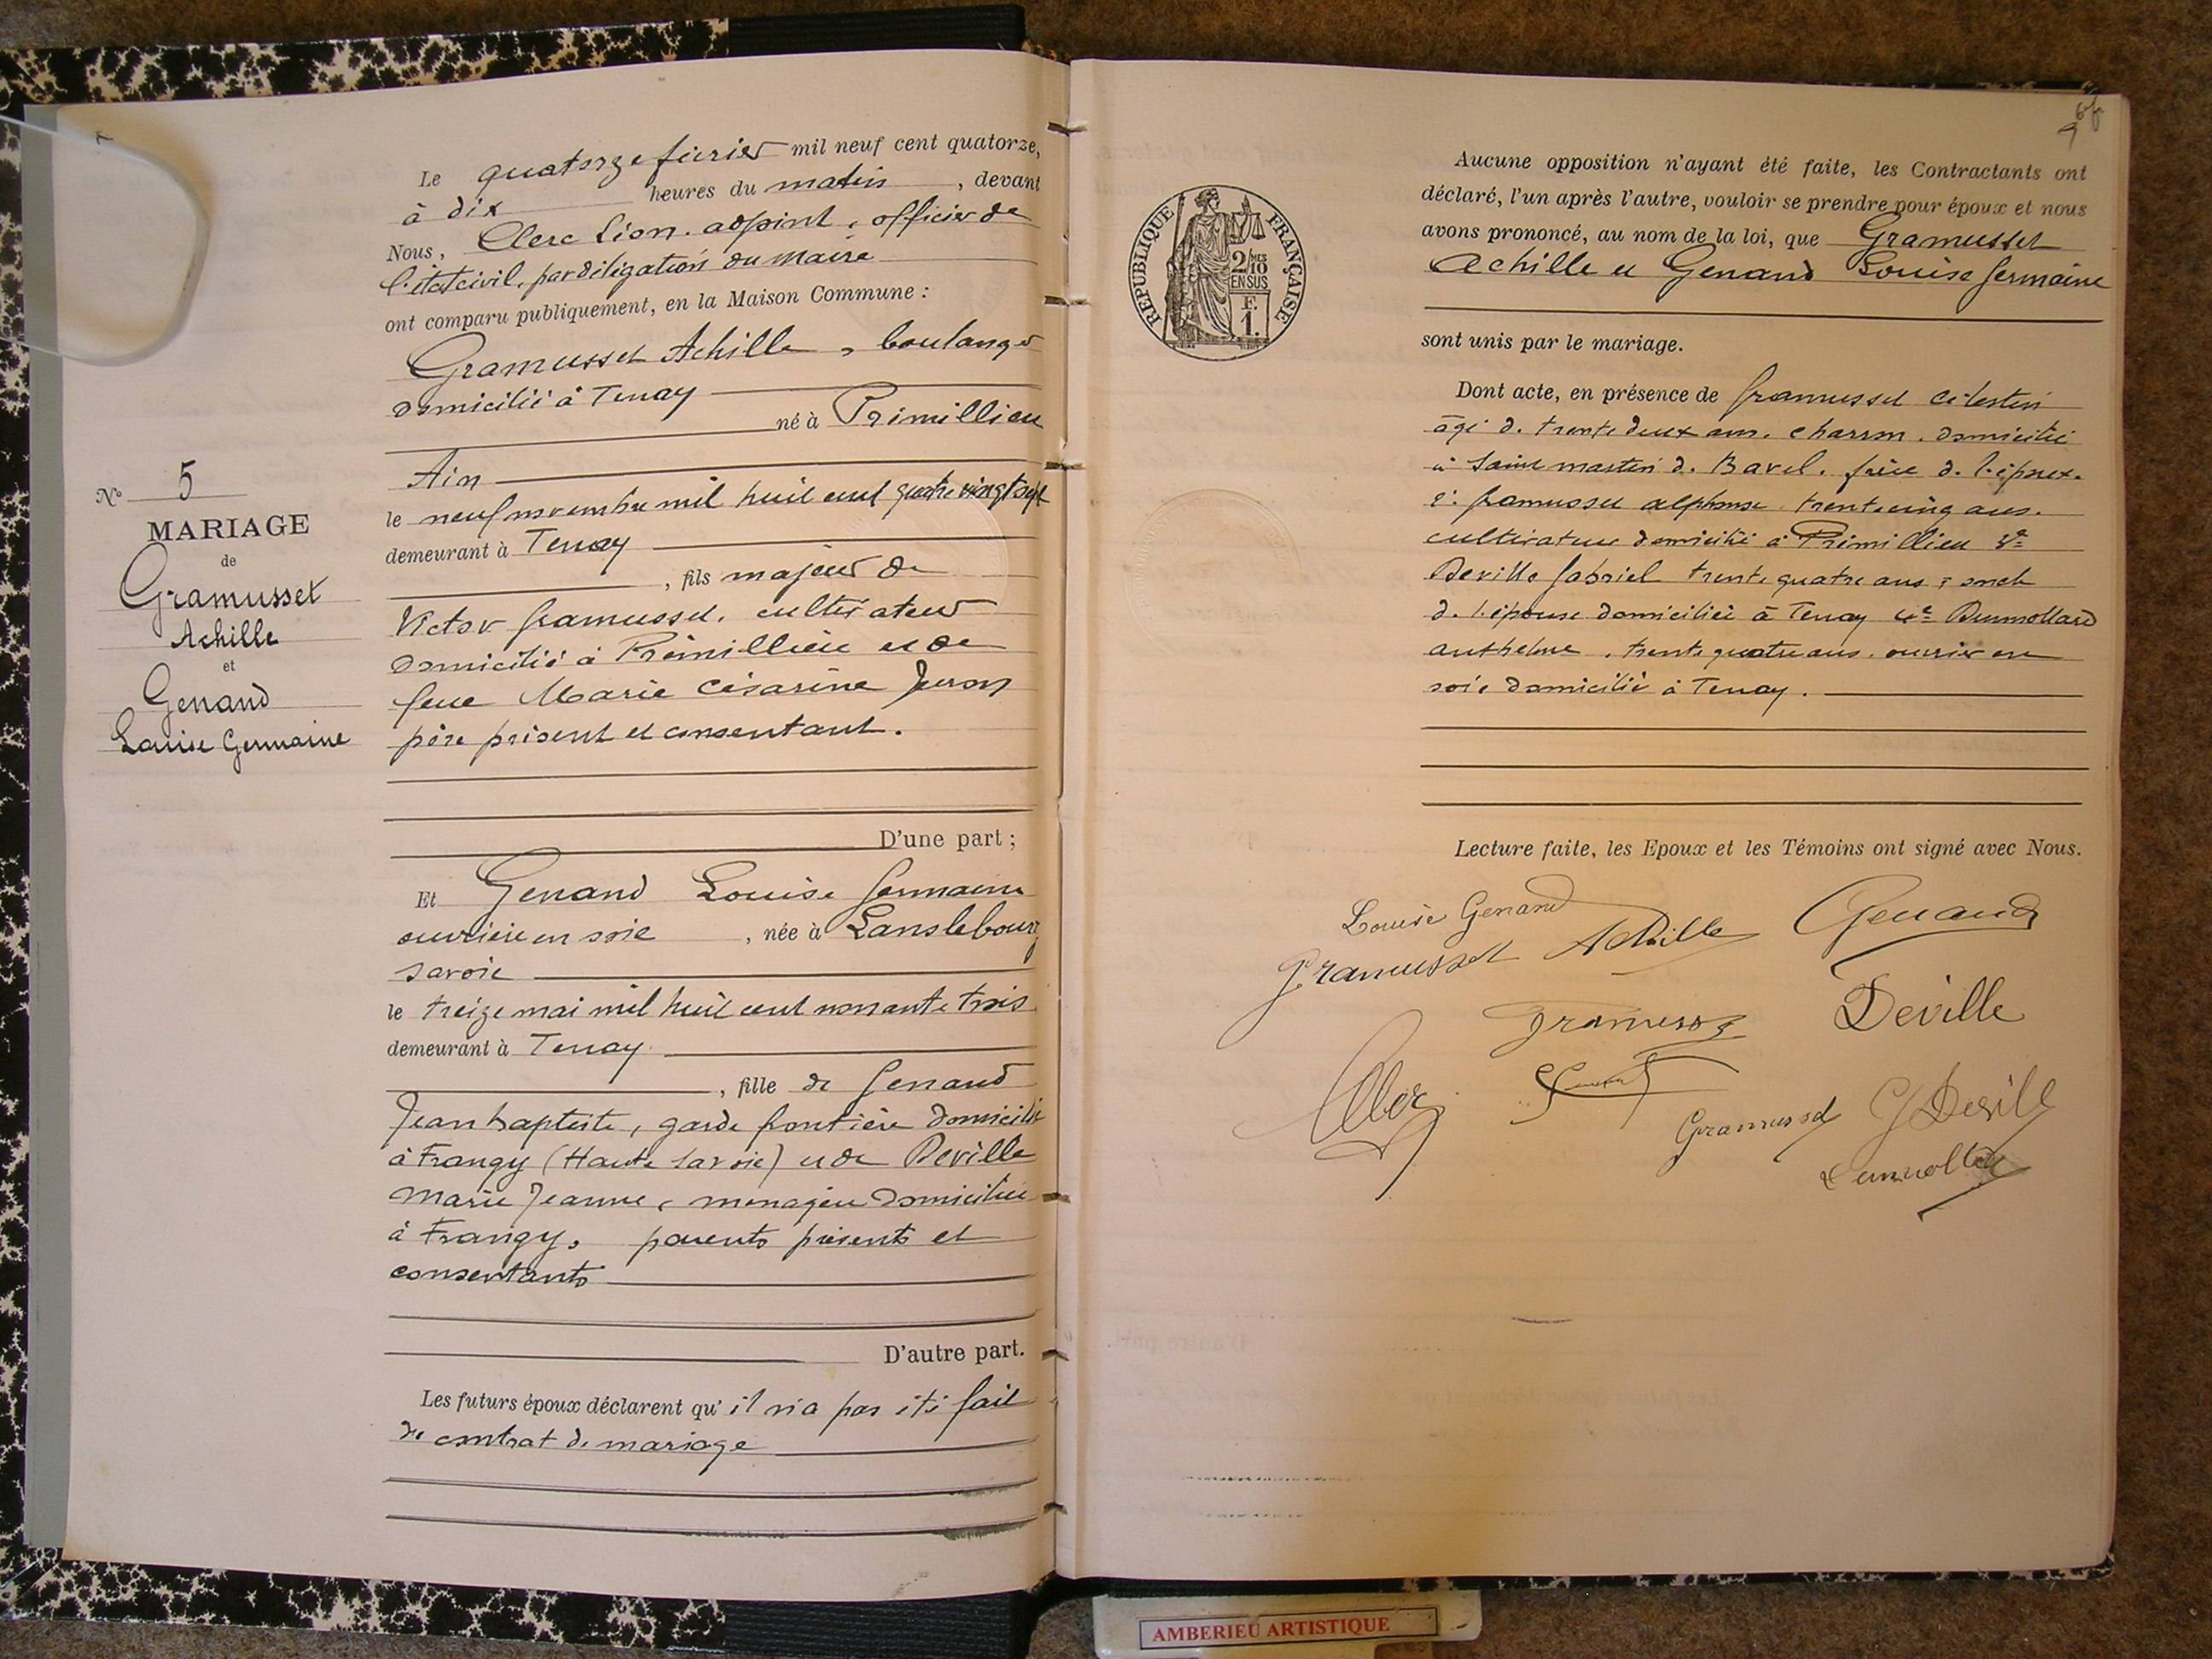 N° 5
MARIAGE
de
Gramusset
Achille
et
Genand
Louise Germaine
Le quatorze février mil neuf cent quatorze,
à dix heures du matin, devant
Nous, Clerc Léon. adjoint, officier de
l'état civil, par délégation du maire
ont comparu publiquement, en la Maison Commune :
Gramusset Achille, boulanger
domicilié à Tenay
né à Prémillieu
Ain
le neuf novembre mil huit cent quatre vingt sept
demeurant à Tenay
, fils majeur de
Victor Gramusset, cultivateur
domicilié à Prémillieu et de
feue Marie Césarine Juron
père présent et consentant.
D'une part ;
Et Genand Louise Germaine
ouvrière en soie, née à Lanslebourg
Savoie
le treize mai mil huit cent nonante trois
demeurant à Tenay
, fille de Genand
Jean baptiste, garde frontière domicilié
à Frangy (Haute Savoie) et de Deville
Marie Jeanne, ménagère domiciliée
à Frangy, parents présents et
consentants
D'autre part.
Les futurs époux déclarent qu'il n'a pas été fait
de contrat de mariage
REPUBLIQUE FRANÇAISE
2/10 MES
EN SUS
F.
1.
Aucune opposition n'ayant été faite, les Contractants ont
déclaré, l'un après l'autre, vouloir se prendre pour époux et nous
avons prononcé, au nom de la loi, que Gramusset
Achille et Genand Louise Germaine
sont unis par le mariage.
Dont acte, en présence de Gramusset Célestin
âgé de trente deux ans. charron. domicilié
à Saint martin de Bavel. frère de l'époux.
2° Gramusset alphonse trente cinq ans.
cultivateur domicilié à Prémillieu 3e
Deville Gabriel trente quatre ans, oncle
de l'épouse domicilié à Tenay 4e Dumollard
anthelme, trente quatre ans. ouvrier en
soie domicilié à Tenay.
Lecture faite, les Epoux et les Témoins ont signé avec Nous.
Louise Genand
Gramusset Achille
Genand
Gramusset
Deville
Clerc
Gramusset
G Deville
Dumollard
AMBERIEU ARTISTIQUE